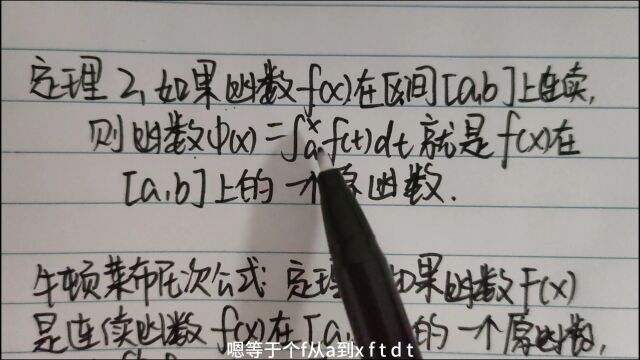 定理2,如果函数f(x)在区间[a,b]上连续,
则函数Φ(x)=∫ₐˣf(t)dt就是f(x)在
[a,b]上的一个原函数.
牛顿莱布尼次公式:定理 如果函数F(x)
是连续函数f(x)在[a, 的一个原函数,
嗯等于个f从a到x f t d t